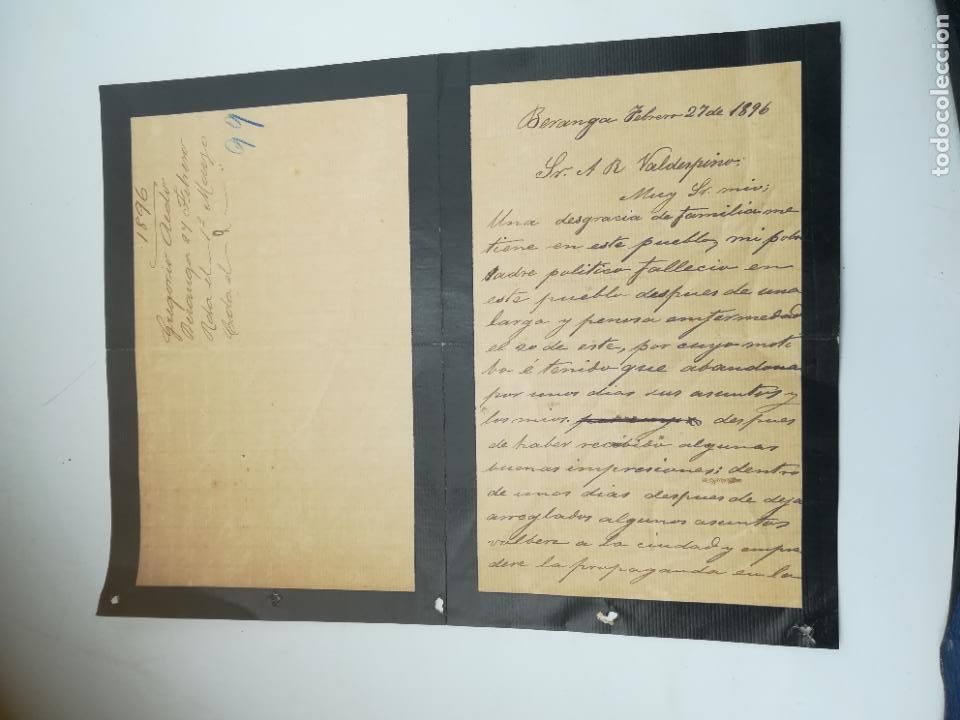 1896
Gregorio
Beranga 27 Febrero
Rda el 1º Marzo
Cda el 9
99
Beranga Febrero 27 de 1896
Sr. A R Valdespino:
Muy Sr. mio;
Una desgracia de familia me
tiene en este pueblo, mi pobre
Padre politico fallecio en
este pueblo despues de una
larga y penosa enfermedad
el 20 de este, por cuyo moti
bo é tenido que abandona
por unos dias sus asuntos y
los mios. despues
de haber recibido algunas
buenas impresiones; dentro
de unos dias despues de deja
arreglados algunos asuntos
volbere a la ciudad y empre
dere la propaganda en la
todocoleccion